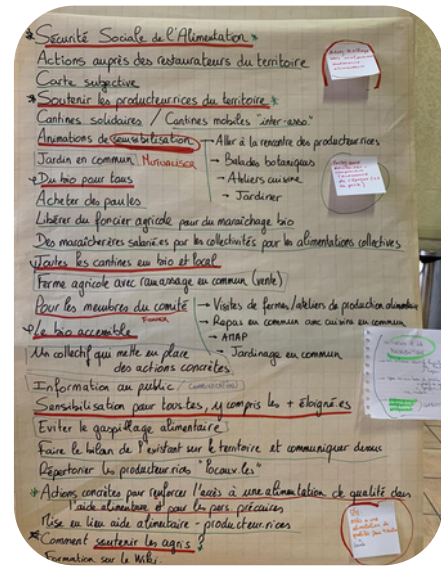 * Sécurité Sociale de l'Alimentation *
Actions auprès des restaurateurs du territoire
Carte subjective
* Soutenir les producteur.rices du territoire *
Cantines solidaires / Cantines mobiles "inter-asso."
Animations de sensibilisation → Aller à la rencontre des producteur.rices
Jardin en commun MUTUALISER → Balades botaniques
* Du bio pour tous → Ateliers cuisine
Acheter des paules → Jardiner
Libérer du foncier agricole pour du maraîchage bio
Des maraîcher.ères salarié.es par les collectivités pour les alimentations collectives
* Toutes les cantines en bio et local
Ferme agricole avec ramassage en commun (vente)
Pour les membres du comité → Visites de fermes/ateliers de production alimentaire
FORMER → Repas en commun avec cuisine en commun
* Le bio accessible → AMAP
Un collectif qui mette en place → Jardinage en commun
des actions concrètes
Information au public / COMMUNICATION
Sensibilisation pour tous.tes, y compris les + éloigné.es
Eviter le gaspillage alimentaire
Faire le bilan de l'existant sur le territoire et communiquer dessus
Répertorier les producteur.rices "locaux.les"
* Actions concrètes pour renforcer l'accès à une alimentation de qualité dans
l'aide alimentaire et pour les pers. précaires
Mise en lien aide alimentaire - producteur.rices
* Comment soutenir les agris ?
Formation sur le Wiki.